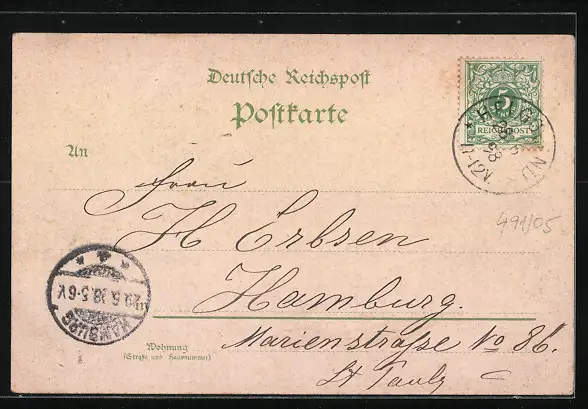 Deutsche Reichspost
Postkarte
5
REICHSPOST
HELGOLAND
98
11-12V
An
Frau
H Erbsen
491/05
Hamburg.
29.6.98.5-6V.
HAMBURG
Marienstraße No 86.
Wohnung
(Straße und Hausnummer)
St Pauly